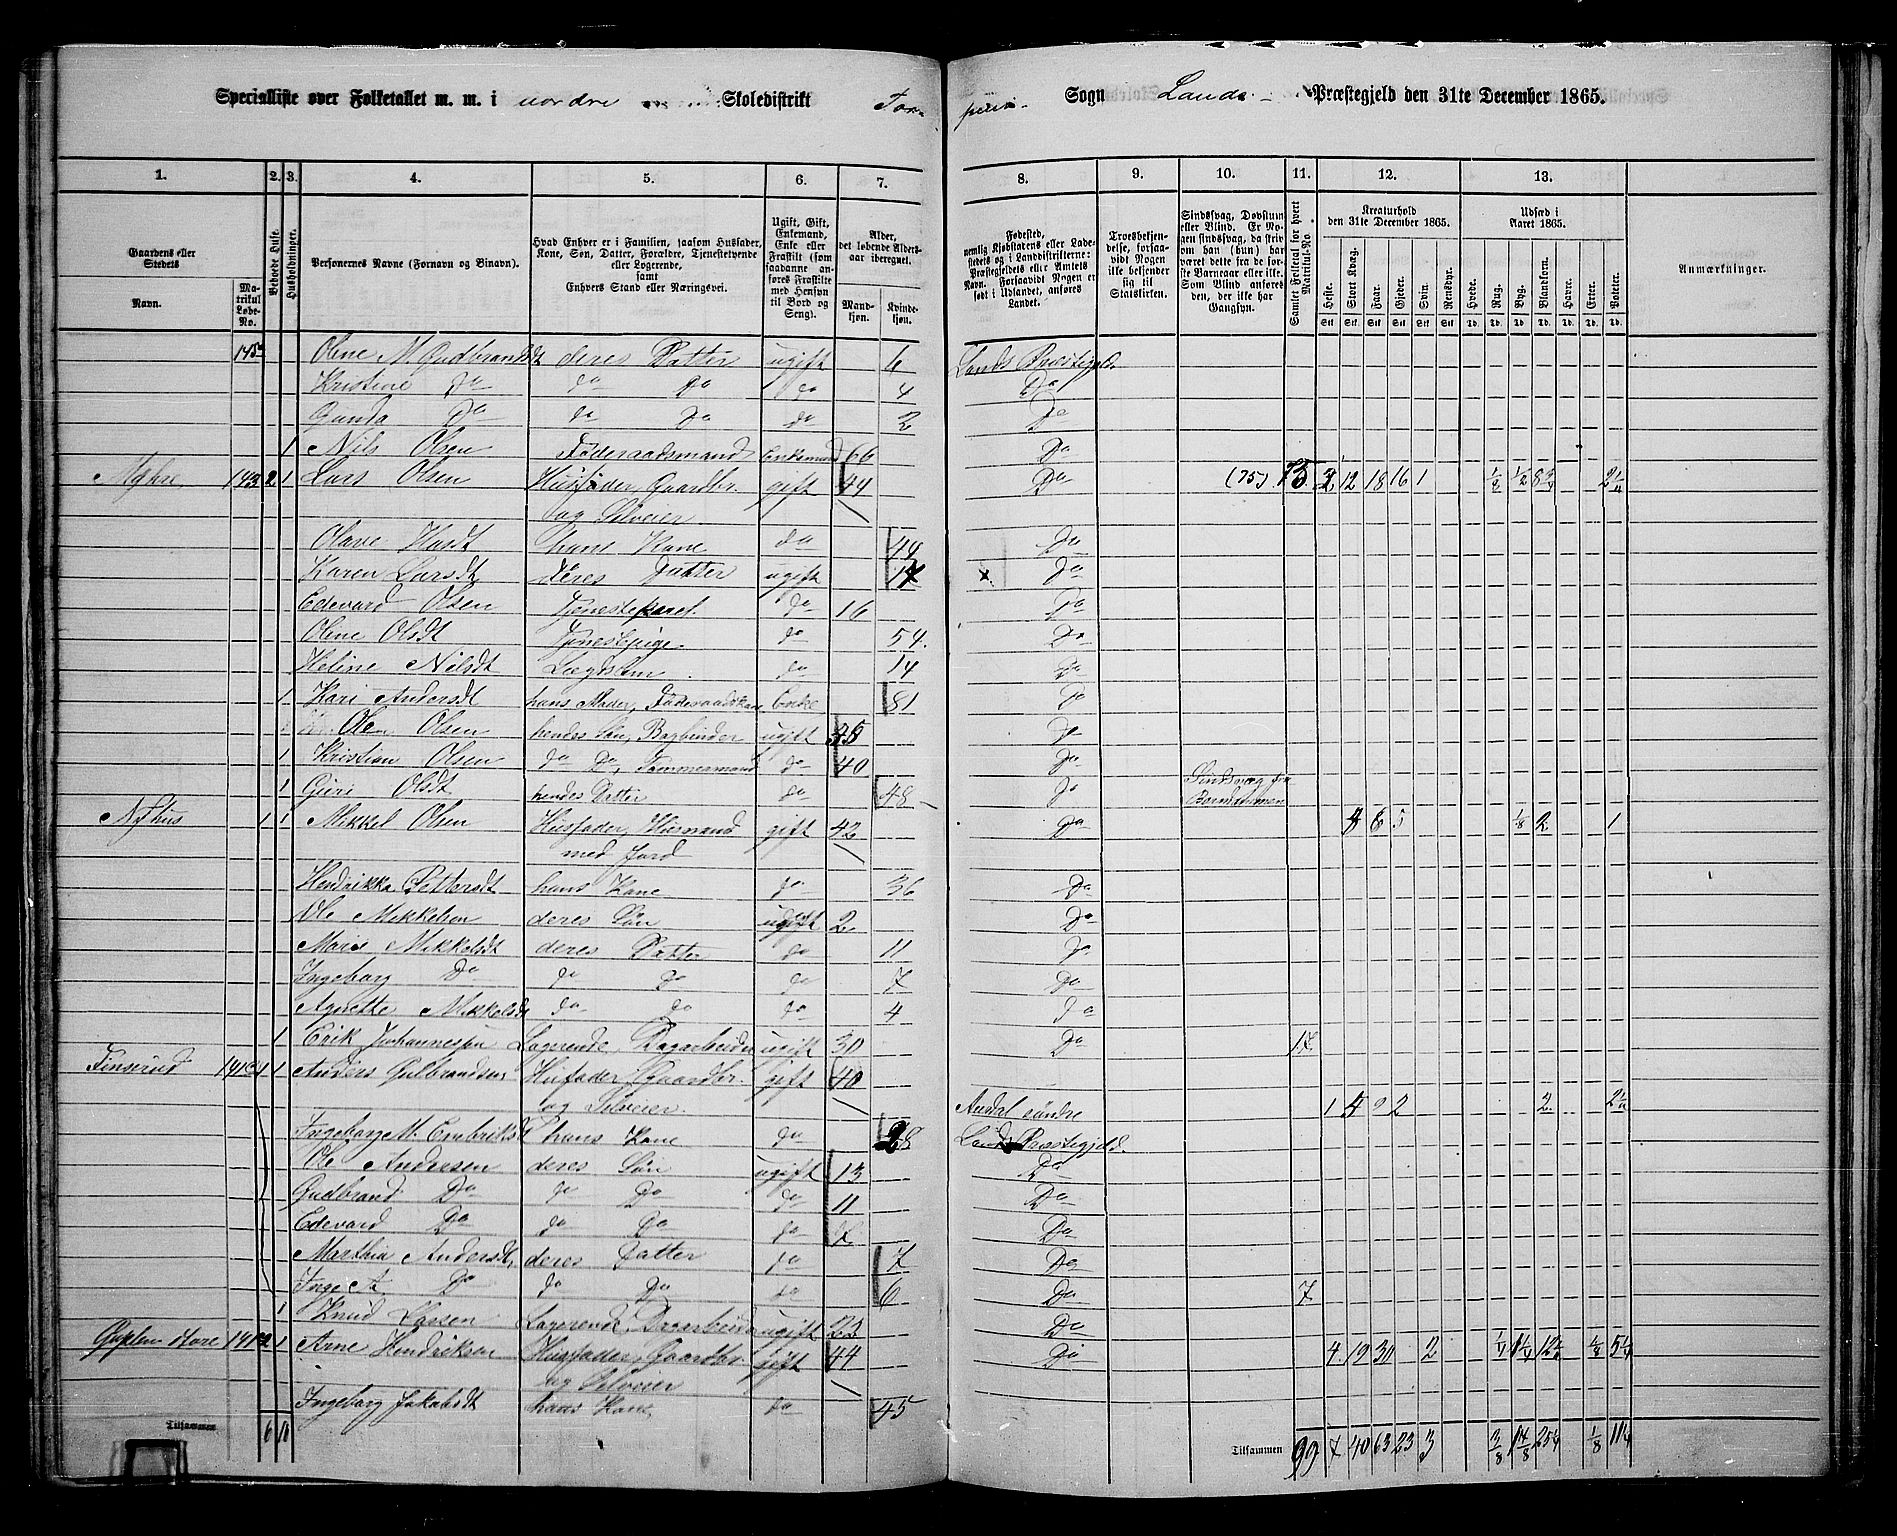 Specialliste over Folketallet m. m. i nordre Skoledistrikt Tor-
pens Sogn Lands Præstegjeld den 31te December 1865.
1. 2. 3. 4. 5. 6. 7. 8. 9. 10. 11. 12. 13.
Gaardens eller Stedets
Navn. Matrikul Løbe-No.
Beboede Huse.
Husholdninger.
Personernes Navne (Fornavn og Binavn).
Hvad Enhver er i Familien, saasom Husfader, Kone, Søn, Datter, Forældre, Tjenestetyende eller Logerende, samt Enhvers Stand eller Næringsvei.
Ugift, Gift, Enkemand, Enke eller Fraskilt (som saadanne anføres Fraskilte med Hensyn til Bord og Seng).
Alder, det løbende Aldersaar iberegnet.
Mandkjøn. Kvindekjøn.
Fødested, nemlig Kjøbstadens eller Ladestedets og i Landdistrikterne: Præstegjeldets eller Amtets Navn. Forsaavidt Nogen er født i Udlandet, anføres Landet.
Troesbekjendelse, forsaavidt Nogen ikke bekjender sig til Statskirken.
Sindssvag, Døvstum eller Blind. Er Nogen sindssvag, da skriv om han (hun) har været dette fra de første Barneaar eller ikke. Som Blind anføres den, der ikke har Gangsyn.
Samlet Folketal for hvert Matrikul-No.
Kreaturhold den 31te December 1865.
Heste. Stort Kvæg. Faar. Gjeder. Svin. Rensdyr.
Udsæd i Aaret 1865.
Hvede. Rug. Byg. Blandkorn. Havre. Erter. Poteter.
Anmærkninger.
Stk. Stk. Stk. Stk. Stk. Stk. Td. Td. Td. Td. Td. Td. Td.
Olene M. Gudbrandsdt deres Datter ugift 6 Lands Præstegjeld
Kristine Do do Do do 4 Do
Gunda Do do Do do 2 Do
1 Nils Olsen Føderaadsmand Enkemand 66 Do
Myhre 143 2 1 Lars Olsen Husfader, Gaardbr. gift 44 Do (75) 2 12 18 16 1
og Selveier
Hansdt hans Kone do 44 Do
Karen Larsdt deres Datter ugift 17 x Do
Edevard Olsen Tjenestekarl do 16 Do
Olene Olsdt Tjenestepige do 54 Do
Heline Nilsdt Lægdslem do 14 Do
1 Kari Andersdt hans Moder, Føderaadskone Enke 81 Do
Ole Olsen hendes Søn, Bogbinder ugift Do
1 Kristian Olsen do Do, Tømmermand do 40 Do
1 Guri Olsdt hendes Datter do 48 Do Sindsvag fra
Barndommen
Nyhus 1 1 Mikkel Olsen Husfader, Husmand gift 42 Do 6 5 1/8 2 1
med Jord
Hendrikka Pettersdt hans Kone do 36 Do
Ole Mikkelsen deres Søn ugift 2 Do
Marie Mikkelsdt deres Datter do 11 Do
Ingeborg Do do Do do 7 Do
Agnette Mikkelsdt do Do do 4 Do
1 Erik Johannesen Logerende, Dagarbeider ugift 30 Do 17
Finserud 1 Anders Gulbrandsen Husfader, Gaardbr. gift 40
og Selveier Aurdal søndre 1 4 9 2 2
Ingeborg M. Embriksdt hans Kone do 28 Lands Præstegjeld
Ole Andersen deres Søn ugift 13 Do
Gudbrand Do do Do do 11 Do
Edevard Do do Do do Do
Marthea Andersdt deres Datter do 7 Do
Inge A. Do do Do do 6 Do 7
1 Knud Larsen Logerende, Dagarbeider ugift 22 Do
store 1 Arne Hendriksen Husfader, Gaardbr. gift 44 Do 4 19 30 2
og Selveier
Ingeborg Jakobsdt hans Kone do 45
Tilsammen 6
Tilsammen 99 7 40 63 23 3 3/8 1/8